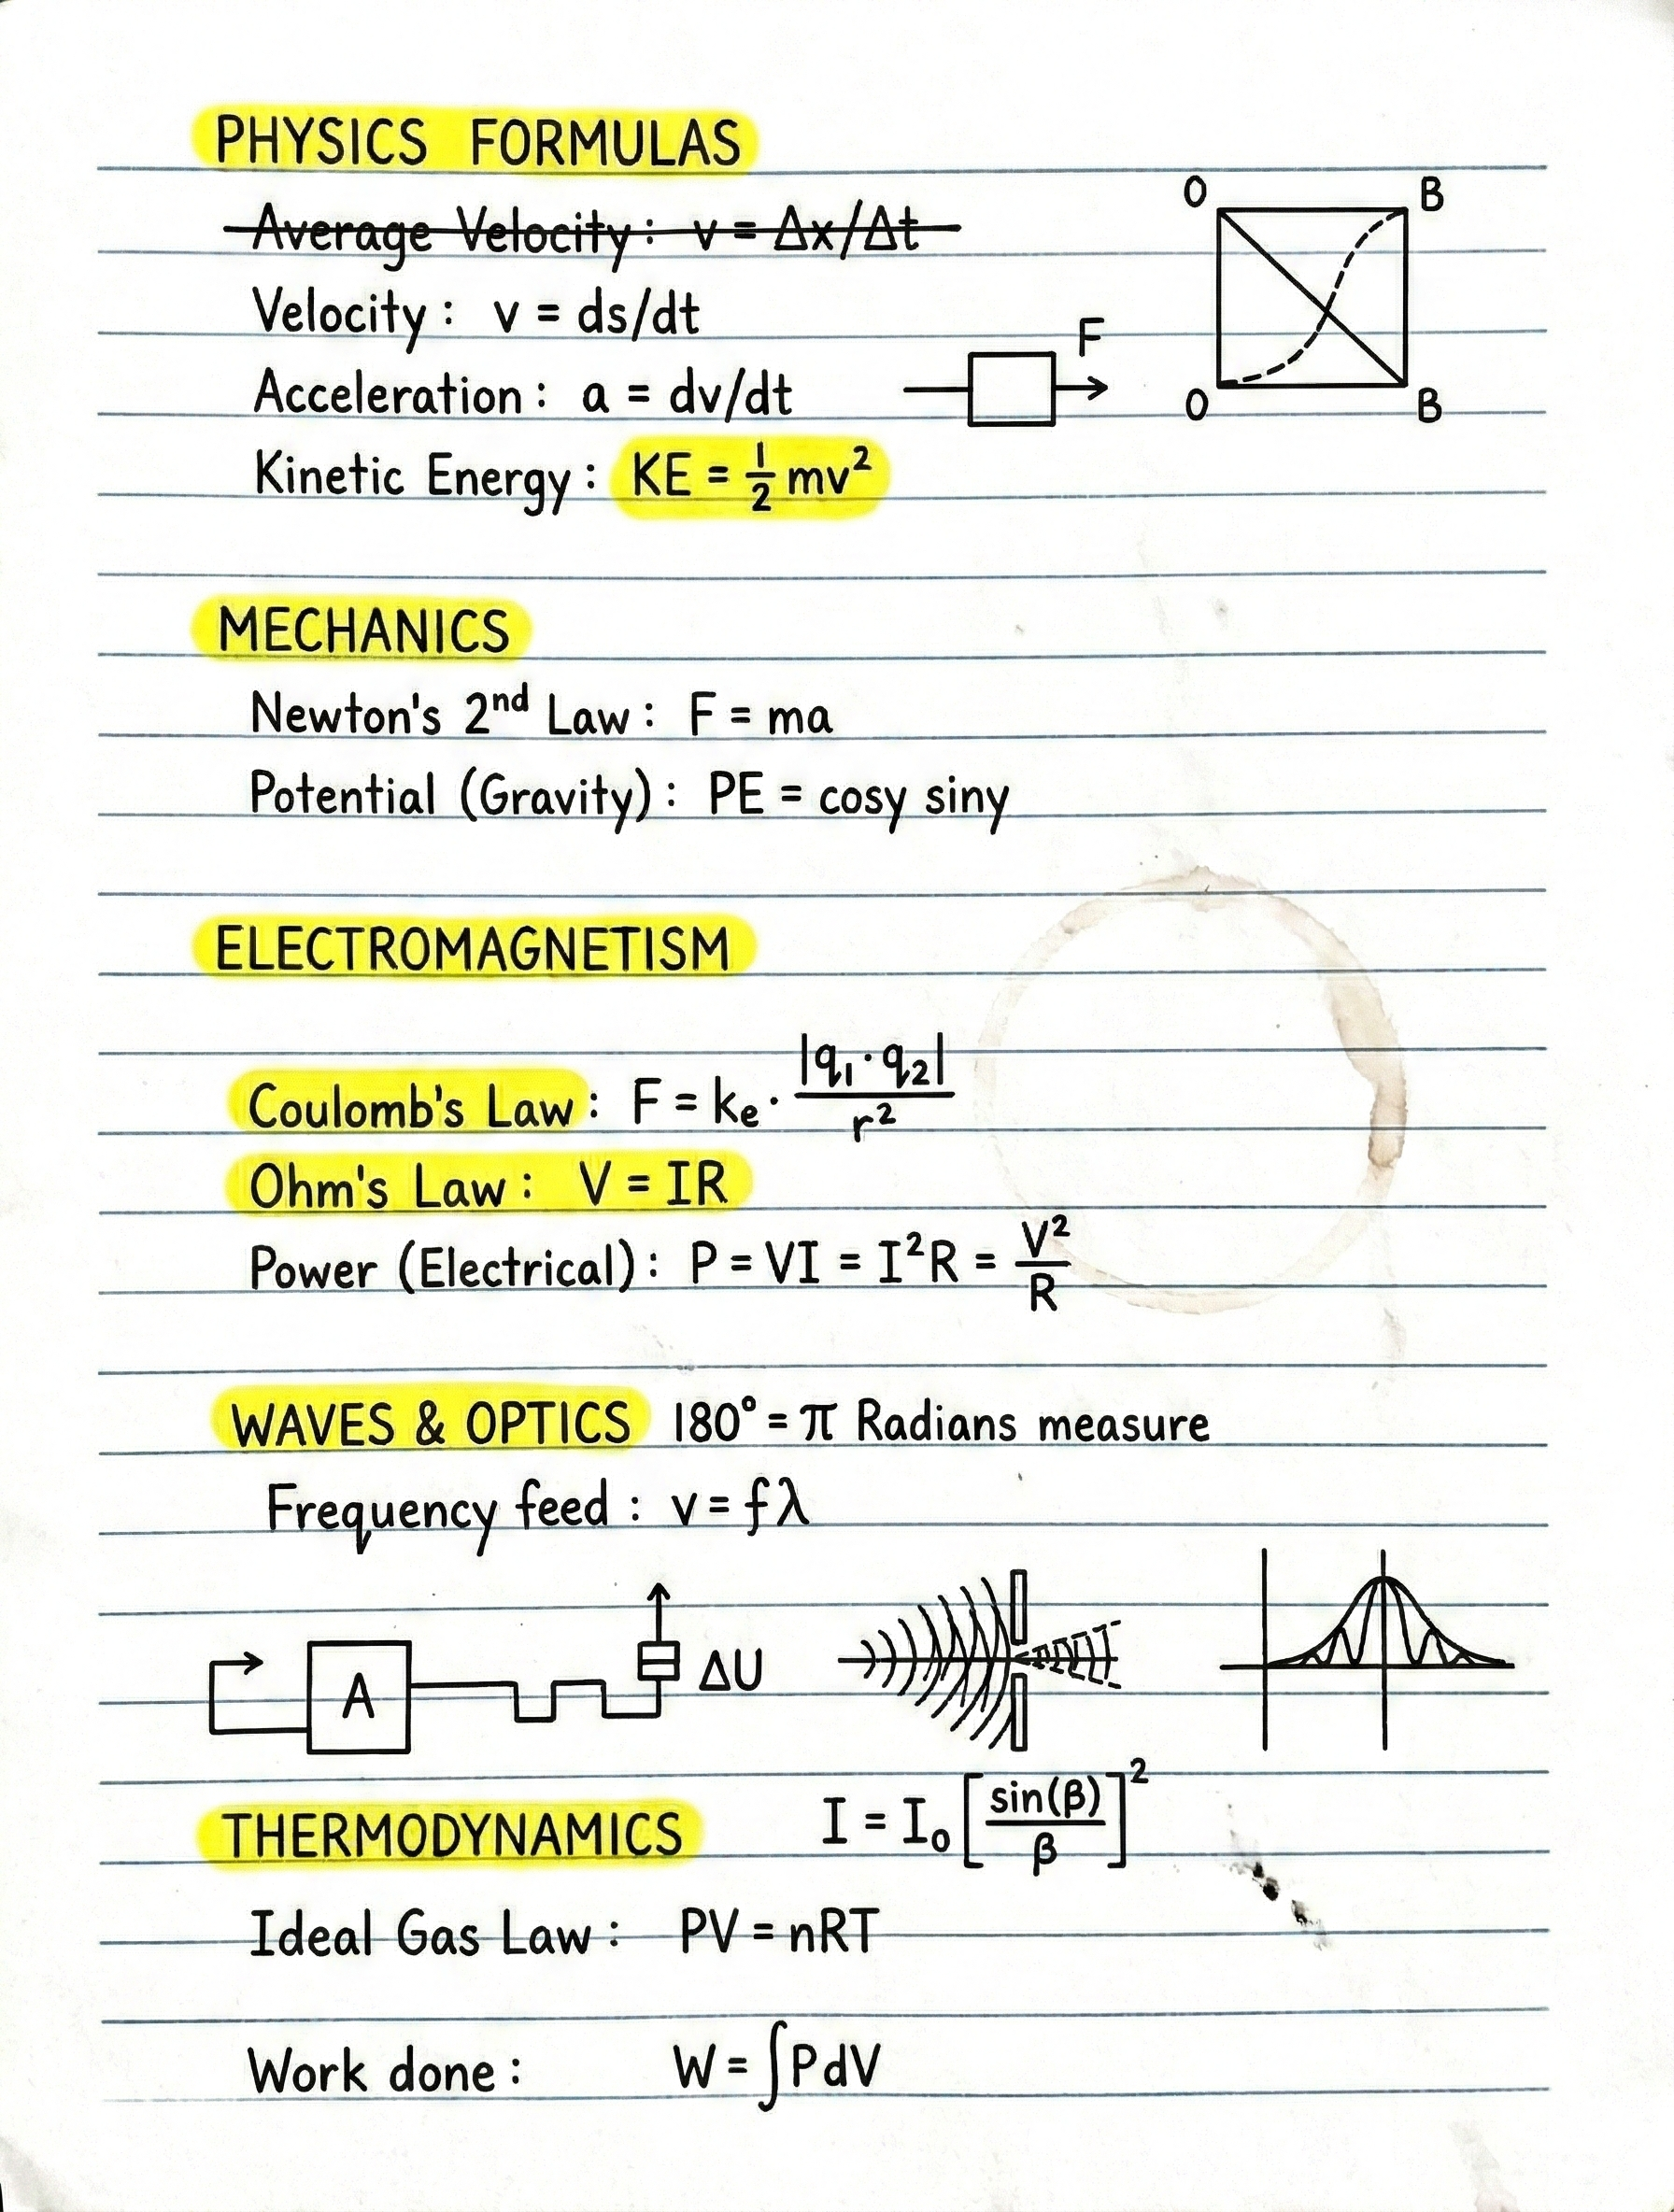 PHYSICS FORMULAS
O B
Average Velocity: v = Δx/Δt
Velocity: v = ds/dt
F
Acceleration: a = dv/dt
O B
Kinetic Energy: KE = ½ mv²
MECHANICS
Newton's 2nd Law: F = ma
Potential (Gravity): PE = cosy siny
ELECTROMAGNETISM
Coulomb's Law: F = kₑ · |q₁·q₂| / r²
Ohm's Law: V = IR
Power (Electrical): P = VI = I²R = V²/R
WAVES & OPTICS 180° = π Radians measure
Frequency feed: v = fλ
A ΔU
I = I₀ [sin(β)/β]²
THERMODYNAMICS
Ideal Gas Law: PV = nRT
Work done: W = ∫PdV